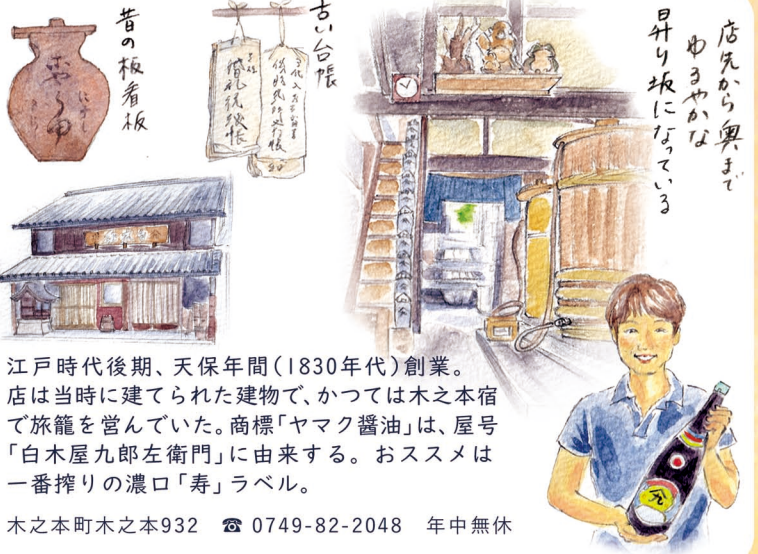 昔の板看板
古い台帳
店先から奥まで
ゆるやかな
昇り坂になっている
江戸時代後期、天保年間(1830年代)創業。
店は当時に建てられた建物で、かつては木之本宿
で旅籠を営んでいた。商標「ヤマク醤油」は、屋号
「白木屋九郎左衛門」に由来する。おススメは
一番搾りの濃口「寿」ラベル。
木之本町木之本932 ☎ 0749-82-2048 年中無休